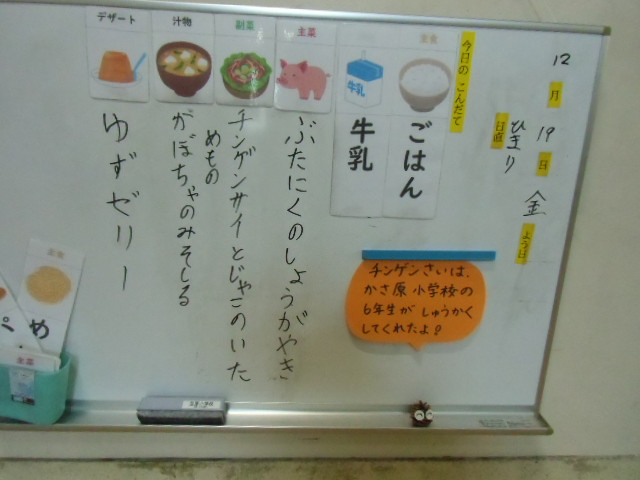 12
月
19
日
金
よう日
日直
ひまり
今日の こんだて
主食
ごはん
牛乳
牛乳
主菜
ぶたにくのしょうがやき
副菜
チンゲンサイとじゃこのいた
めもの
汁物
かぼちゃのみそしる
デザート
ゆずゼリー
チンゲンさいは、
かさ原小学校の
6年生が しゅうかく
してくれたよ!
主食
め
ぺ
主菜